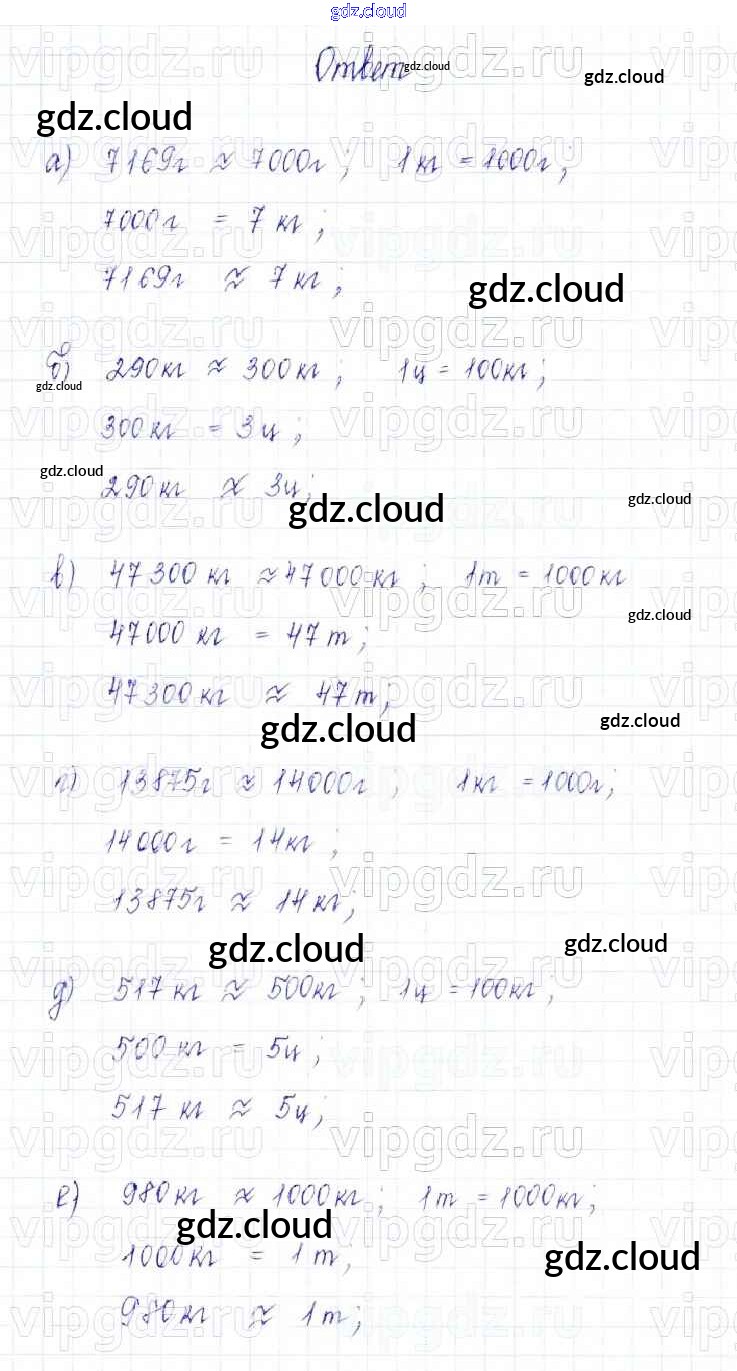 gdz.cloud
Ответ gdz.cloud
gdz.cloud
gdz.cloud
а) 7169г ≈ 7000г ; 1кг = 1000г ;
7000г = 7 кг ;
7169г ≈ 7кг ;
gdz.cloud
б) 290кг ≈ 300кг ; 1ц = 100кг ;
gdz.cloud
300кг = 3ц ;
gdz.cloud
290кг ≈ 3ц ;
gdz.cloud
gdz.cloud
в) 47300 кг ≈ 47000 кг ; 1т = 1000кг
gdz.cloud
47000 кг = 47 т ;
47300кг ≈ 47т ;
gdz.cloud
gdz.cloud
г) 13875г ≈ 14000г ; 1кг = 1000г ;
14000г = 14кг ;
13875г ≈ 14кг ;
gdz.cloud
gdz.cloud
д) 517 кг ≈ 500кг ; 1ц = 100кг ;
500 кг = 5ц ;
517 кг ≈ 5ц ;
е) 980кг ≈ 1000кг ; 1т = 1000кг ;
gdz.cloud
1000кг = 1 т ;
gdz.cloud
980кг ≈ 1т ;
vipgdz.ru